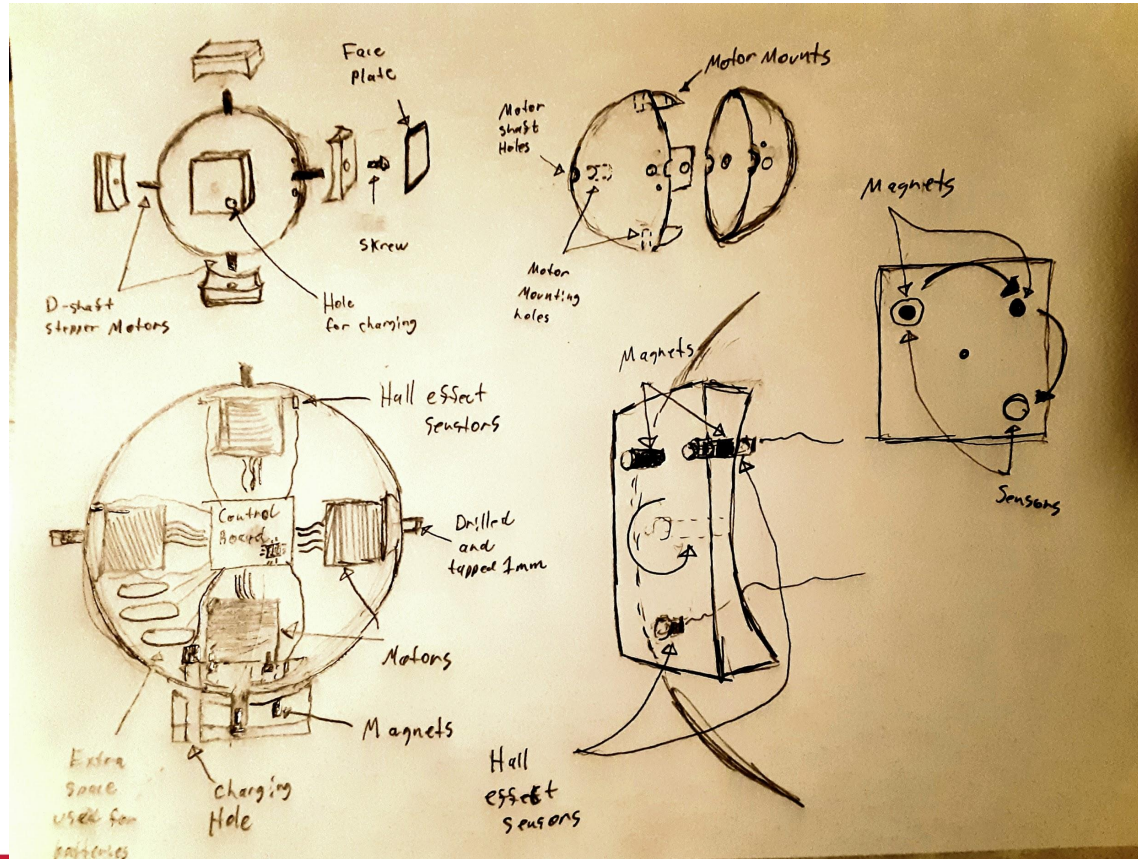 Face
plate
Skrew
D-shaft
stepper Motors
Hole
for charging
Motor Mounts
Motor
shaft
Holes
Motor
Mounting
holes
Magnets
Sensors
Hall effect
Senstors
Control
Board
Drilled
and
tapped 1mm
Motors
Magnets
Charging
Hole
Extra
space
used for
batteries
Magnets
Hall
effect
sensors